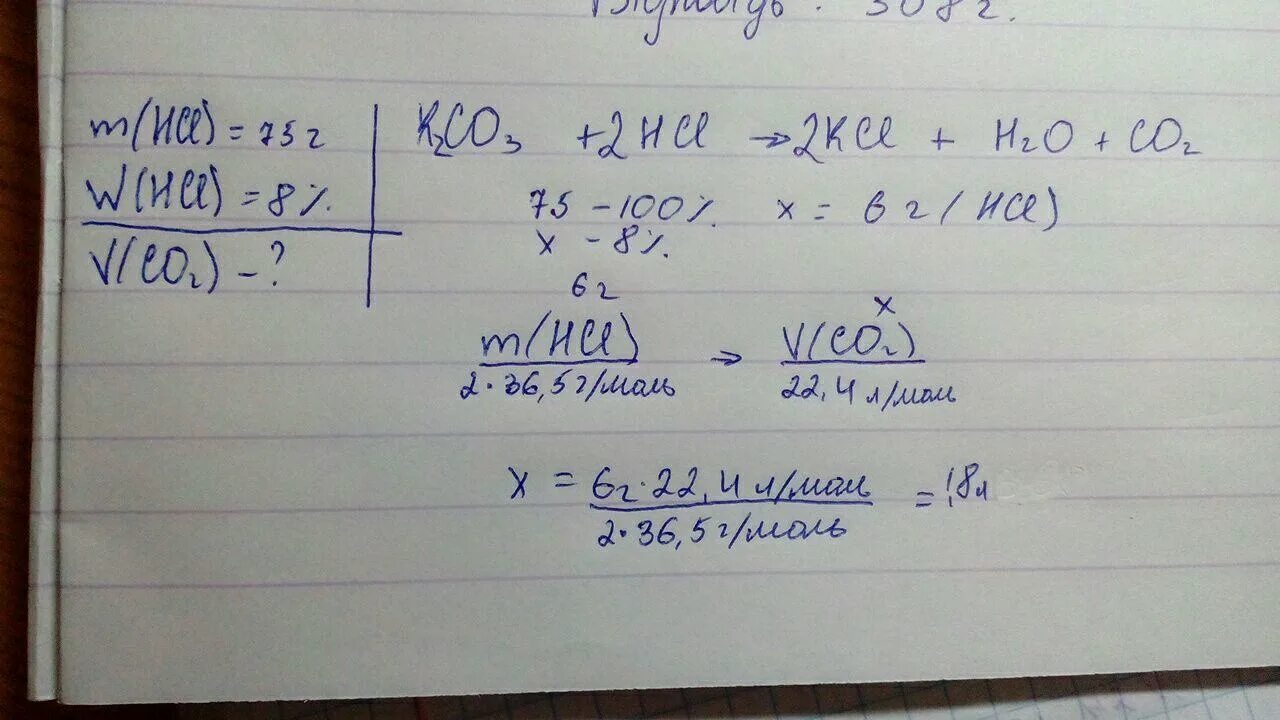 308 г.
m(HCl) = 75 г
W(HCl) = 8%
V(CO₂) - ?
K₂CO₃ + 2HCl → 2KCl + H₂O + CO₂
75 - 100% x = 6 г (HCl)
x - 8%.
6 г x
m(HCl) → V(CO₂)
2·36,5 г/моль 22,4 л/моль
x = 6г·22,4 л/моль = 1,8 л
2·36,5 г/моль